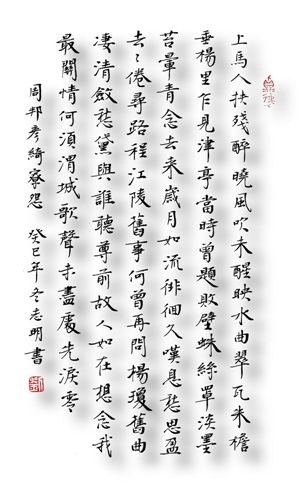 上馬人扶殘醉曉風吹未醒映水曲翠瓦朱檐
垂楊里乍見津亭當時曾題敗壁蛛絲罩淡墨
苔暈青念去來歲月如流徘徊久嘆息愁思盈
去〻倦尋路程江陵舊事何曾再問楊瓊舊曲
淒清斂愁黛與誰聽尊前故人如在想念我
最關情何須渭城歌聲未盡處先淚零
周邦彥綺寮怨 癸巳年冬志明書